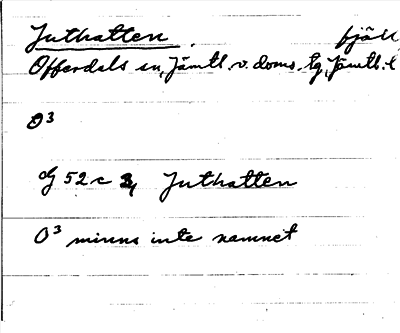 Juthatten. fjäll,
Offerdals sn, Jämtl. v. doms. tg, Jämtl. l
O³
Gg 52 c 3, Juthatten
O³ minns inte namnet